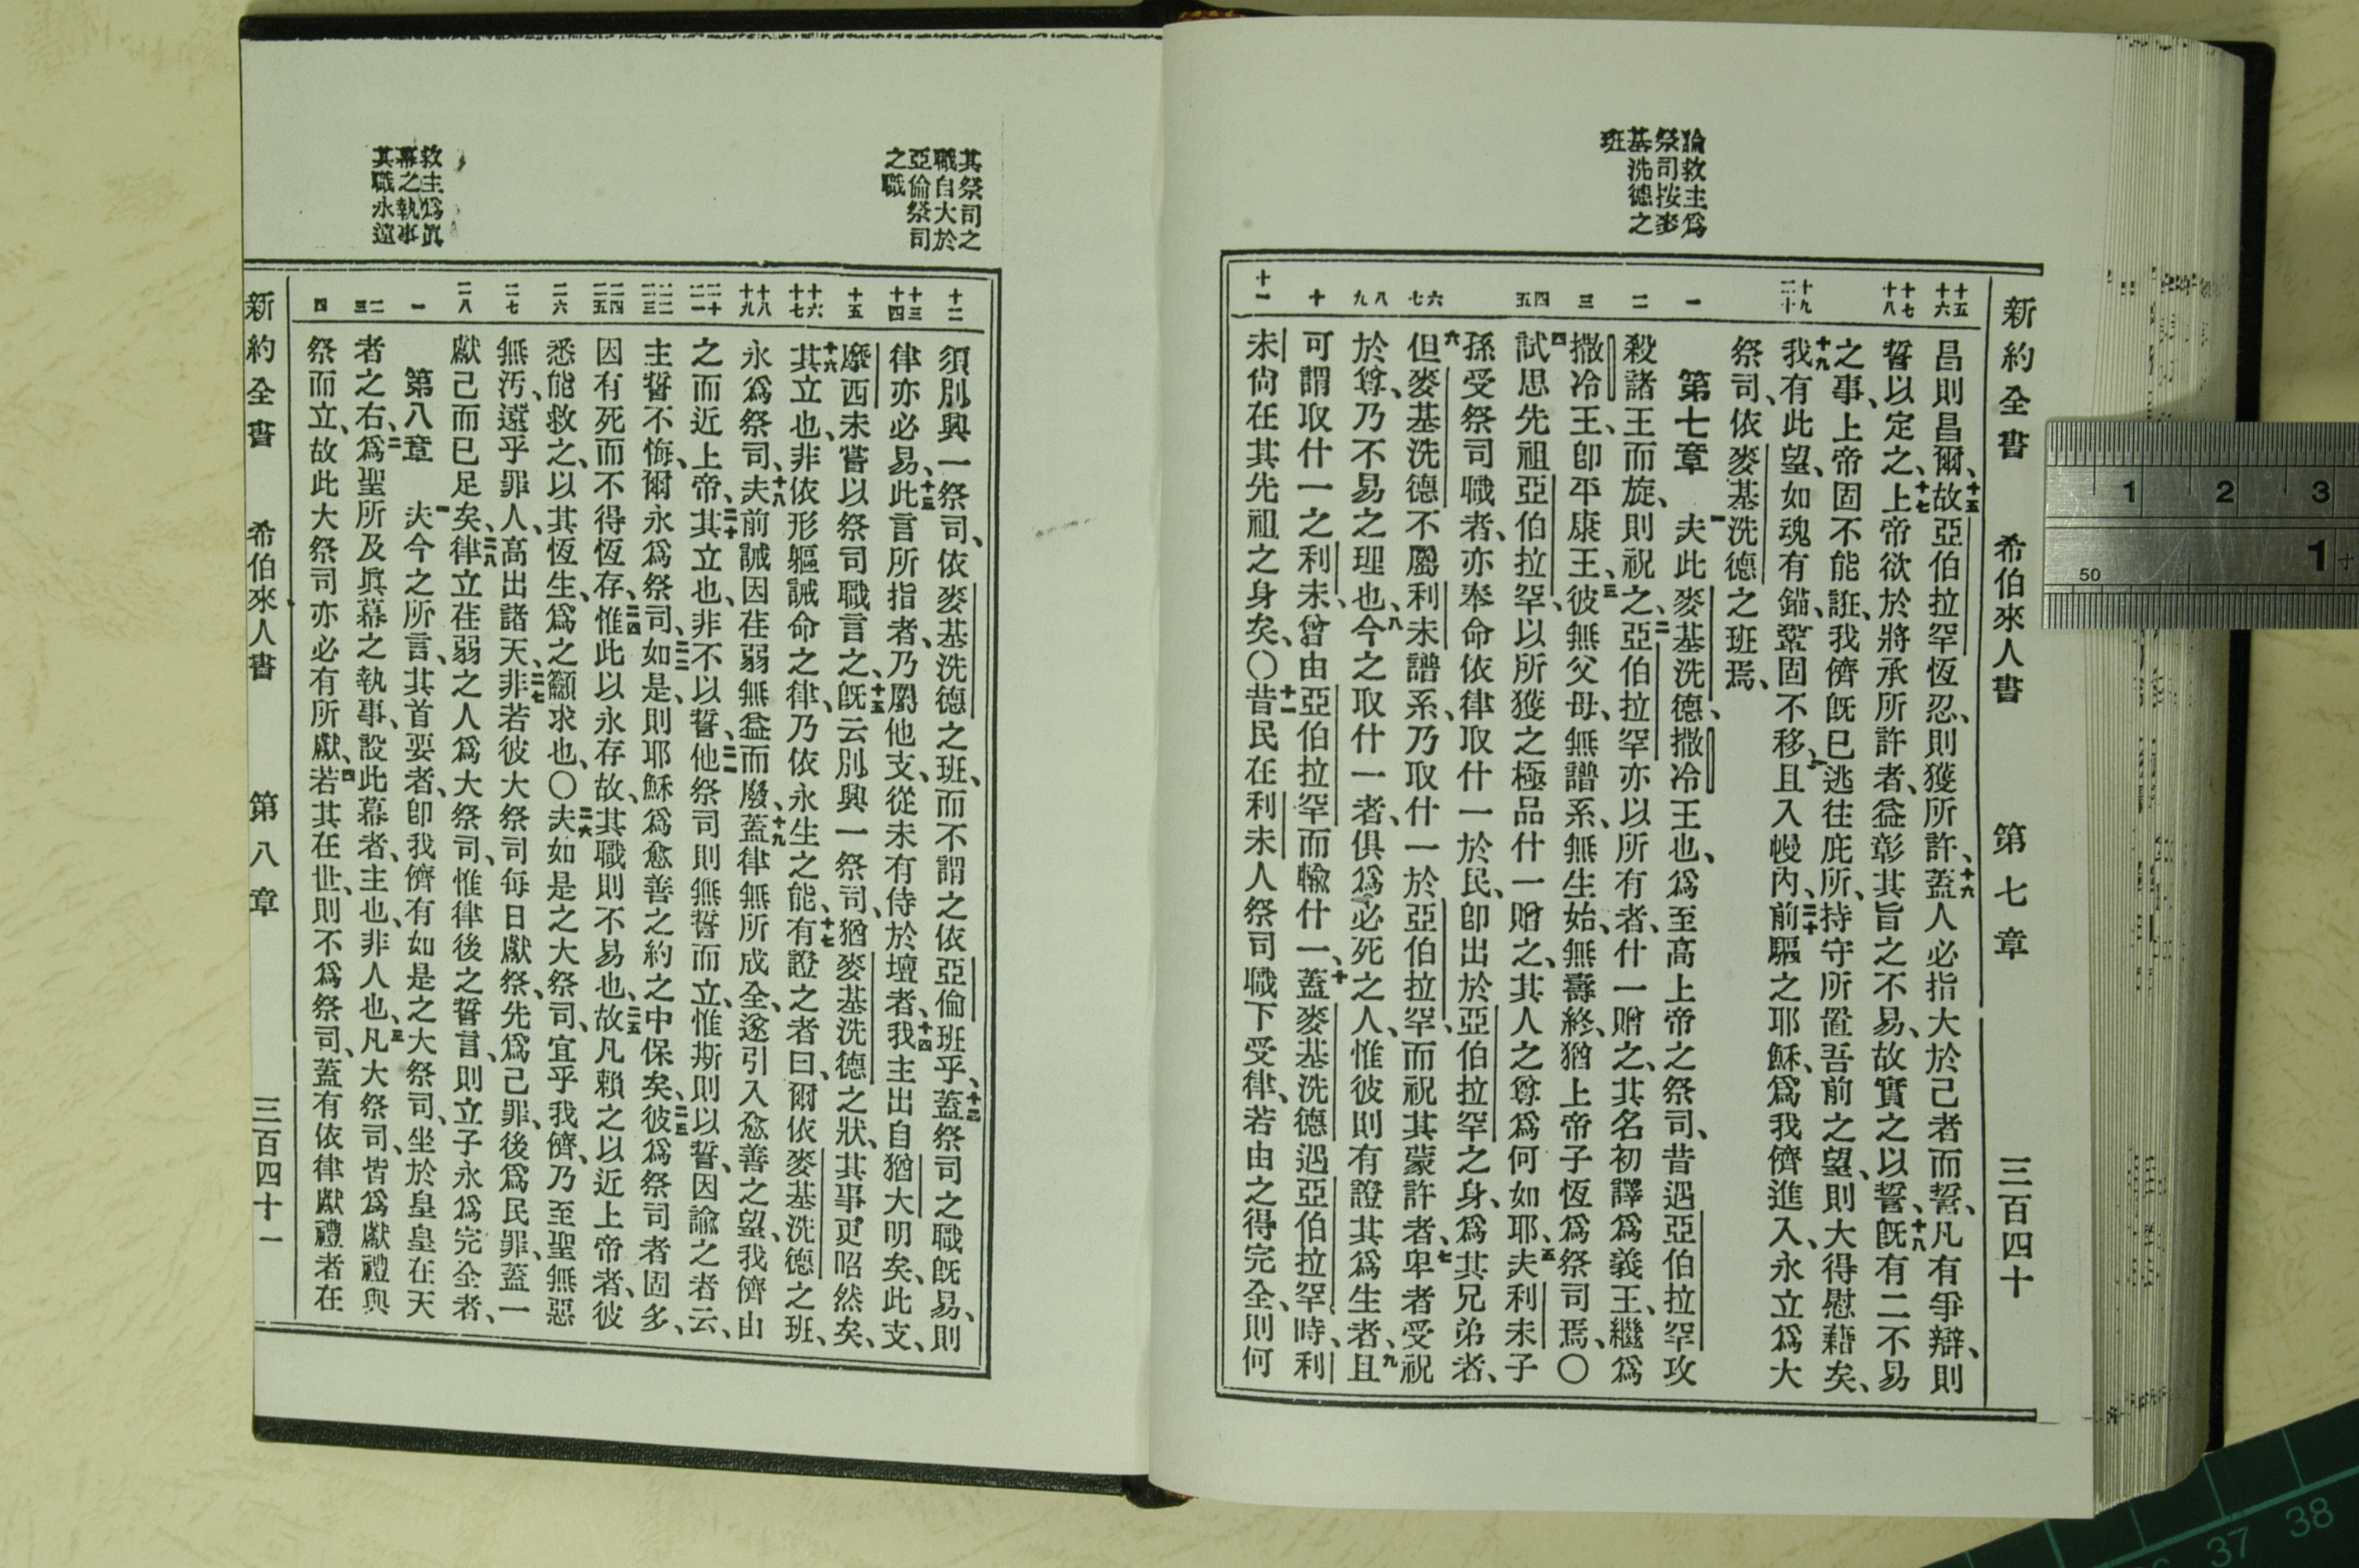 新約全書 希伯來人書 第七章 三百四十
論救主爲
祭司按麥
基洗德之
班
十五 十六 十七 十八 十九 二十 一 二 三 四 五 六 七 八 九 十 十一
昌則昌爾、十五故亞伯拉罕恆忍、則獲所許、十六蓋人必指大於己者而誓、凡有爭辯、則
誓以定之、十七上帝欲於將承所許者、益彰其旨之不易、故實之以誓、十八旣有二不易
之事、上帝固不能誑、我儕旣已逃往庇所、持守所置吾前之望、則大得慰藉矣、
十九我有此望、如魂有錨、鞏固不移、且入幔內、二十前驅之耶穌、爲我儕進入、永立爲大
祭司、依麥基洗德之班焉、
第七章 一夫此麥基洗德、撒冷王也、爲至高上帝之祭司、昔遇亞伯拉罕攻
殺諸王而旋、則祝之、二亞伯拉罕亦以所有者、什一贈之、其名初譯爲義王、繼爲
撒冷王、卽平康王、三彼無父母、無譜系、無生始、無壽終、猶上帝子恆爲祭司焉、〇
四試思先祖亞伯拉罕、以所獲之極品什一贈之、其人之尊爲何如耶、五夫利未子
孫受祭司職者、亦奉命依律取什一於民、卽出於亞伯拉罕之身、爲其兄弟者、
六但麥基洗德不屬利未譜系、乃取什一於亞伯拉罕、而祝其蒙許者、七卑者受祝
於尊、乃不易之理也、八今之取什一者、俱爲必死之人、惟彼則有證其爲生者、九且
可謂取什一之利未、曾由亞伯拉罕而輸什一、十蓋麥基洗德遇亞伯拉罕時、利
未尙在其先祖之身矣、〇十一昔民在利未人祭司職下受律、若由之得完全、則何
其祭司之
職自大於
亞倫祭司
之職
十二 十三 十四 十五 十六 十七 十八 十九 二十 二一 二二 二三 二四 二五 二六 二七 二八 一 二 三 四
須別興一祭司、依麥基洗德之班、而不謂之依亞倫班乎、十二蓋祭司之職旣易、則
律亦必易、十三此言所指者、乃屬他支、從未有侍於壇者、十四我主出自猶大明矣、此支、
摩西未嘗以祭司職言之、十五旣云別興一祭司、猶麥基洗德之狀、其事更昭然矣、
十六其立也、非依形軀誡命之律、乃依永生之能、十七有證之者曰、爾依麥基洗德之班、
永爲祭司、十八夫前誡因荏弱無益而廢、十九蓋律無所成全、遂引入愈善之望、我儕由
之而近上帝、二十其立也、非不以誓、二一他祭司則無誓而立、惟斯則以誓、因諭之者云、
主誓不悔、爾永爲祭司、二二如是、則耶穌爲愈善之約之中保矣、二三彼爲祭司者固多、
因有死而不得恆存、二四惟此以永存故、其職則不易也、二五故凡賴之以近上帝者、彼
悉能救之、以其恆生、爲之籲求也、〇二六夫如是之大祭司、宜乎我儕、乃至聖無惡
無汚、遠乎罪人、高出諸天、二七非若彼大祭司每日獻祭、先爲己罪、後爲民罪、蓋一
獻己而已足矣、二八律立荏弱之人爲大祭司、惟律後之誓言、則立子永爲完全者、
第八章 一夫今之所言、其首要者、卽我儕有如是之大祭司、坐於皇皇在天
者之右、二爲聖所及眞幕之執事、設此幕者、主也、非人也、三凡大祭司、皆爲獻禮與
祭而立、故此大祭司亦必有所獻、四若其在世、則不爲祭司、蓋有依律獻禮者在
救主爲眞
幕之執事
其職永遠
新約全書 希伯來人書 第八章 三百四十一
1 2 3
1
50
37 38